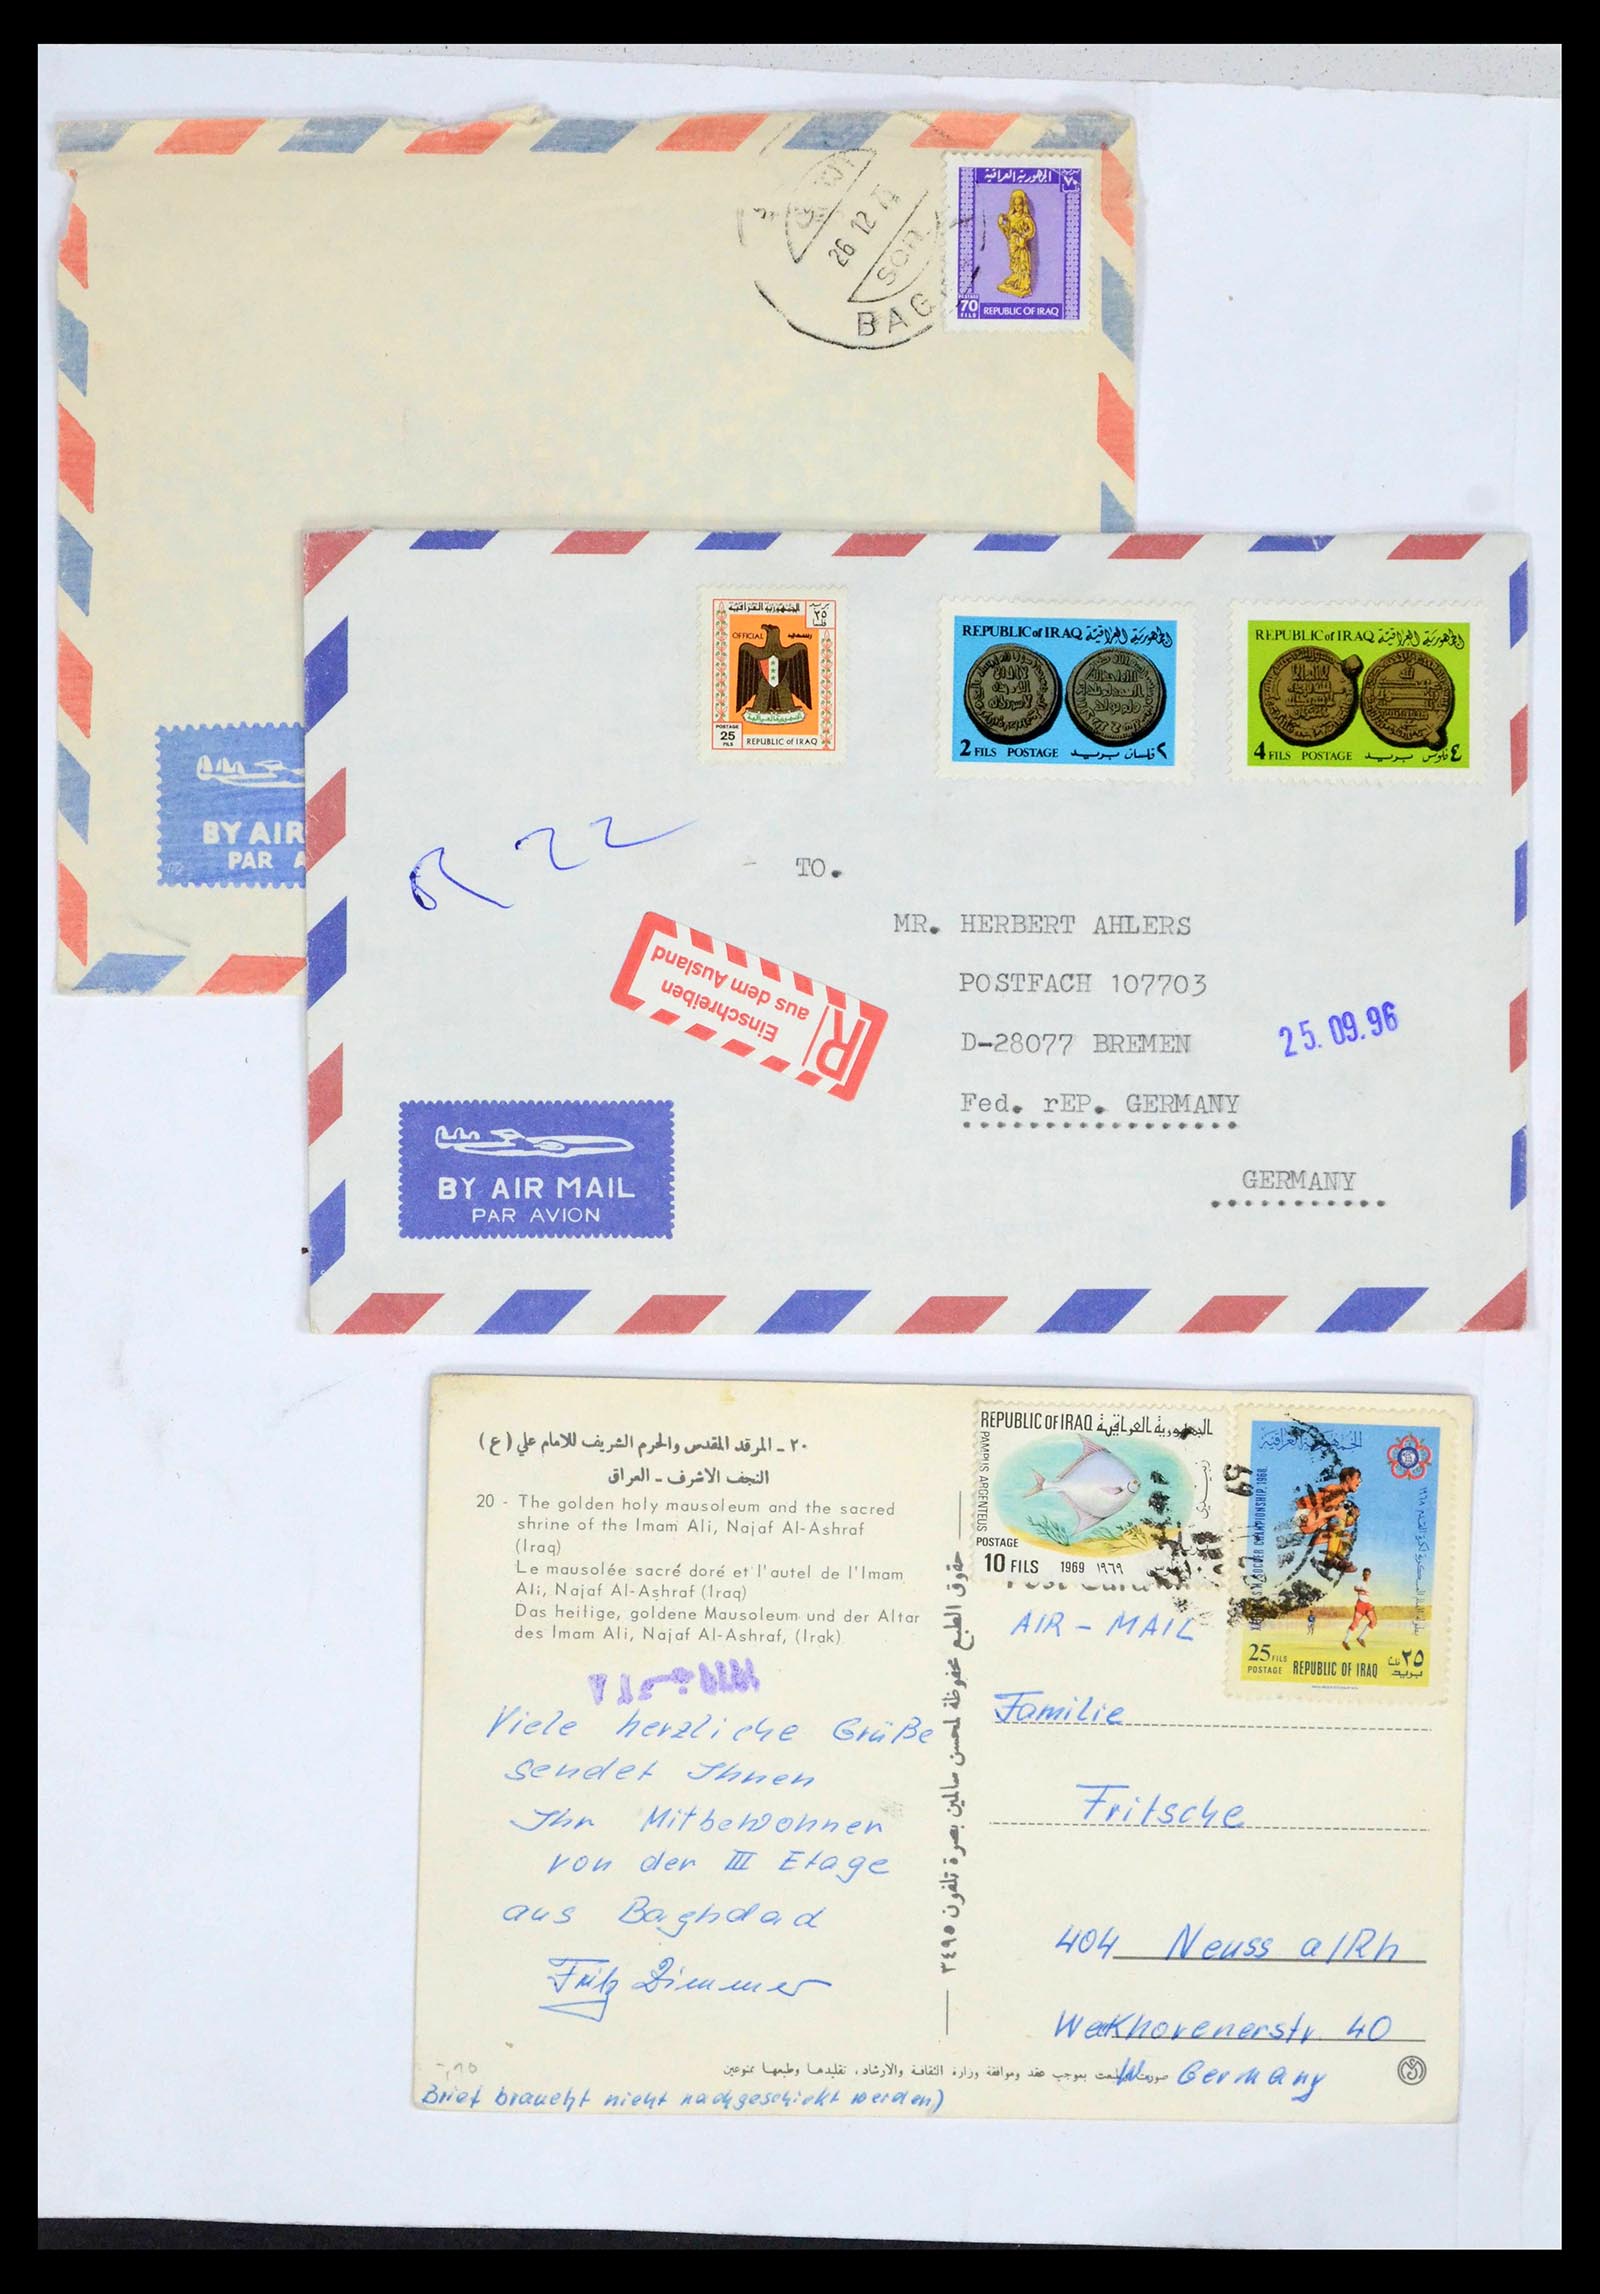 26 12
SON
BAG
الجمهورية العراقية
٧٠
POSTAGE
70
FILS
REPUBLIC OF IRAQ
BY AIR
PAR A
الجمهورية العراقية
بريد
٢٥
فلسا
OFFICIAL رسمي
POSTAGE
25
FILS
REPUBLIC of IRAQ
REPUBLIC of IRAQ الجمهورية العراقية
2 FILS POSTAGE بريد فلسان ٢
REPUBLIC of IRAQ الجمهورية العراقية
4 FILS POSTAGE بريد فلوس ٤
R 22
TO.
MR. HERBERT AHLERS
POSTFACH 107703
D-28077 BREMEN
Fed. rEP. GERMANY
GERMANY
25.09.96
R
Einschreiben
aus dem Ausland
BY AIR MAIL
PAR AVION
٢٠ - المرقد المقدس والحرم الشريف للامام علي (ع)
النجف الاشرف - العراق
20 - The golden holy mausoleum and the sacred
shrine of the Imam Ali, Najaf Al-Ashraf
(Iraq)
Le mausolée sacré doré et l'autel de l'Imam
Ali, Najaf Al-Ashraf (Iraq)
Das heilige, goldene Mausoleum und der Altar
des Imam Ali, Najaf Al-Ashraf, (Irak)
Viele herzliche Grüße
sendet Ihnen
Ihr Mitbewohner
von der III Etage
aus Baghdad
Fritz Zimmer
Brief braucht nicht nachgeschickt werden)
حقوق الطبع محفوظة لمحسن صالمين بصرة تلفون ٣٤٩٥
REPUBLIC OF IRAQ الجمهورية العراقية
PAMPUS ARGENTEUS
POSTAGE
10 FILS 1969 ١٩٦٩
69
الجمهورية العراقية
SOCCER CHAMPIONSHIP, 1968
25 FILS
POSTAGE
REPUBLIC OF IRAQ
٢٥ فلسا
بريد
AIR - MAIL
Familie
Fritsche
404 Neuss a/Rh
Weckhovenerstr 40
W. Germany
طبعت بموجب عقد وموافقة وزارة الثقافة والارشاد، تقليدها وطبعها ممنوعين